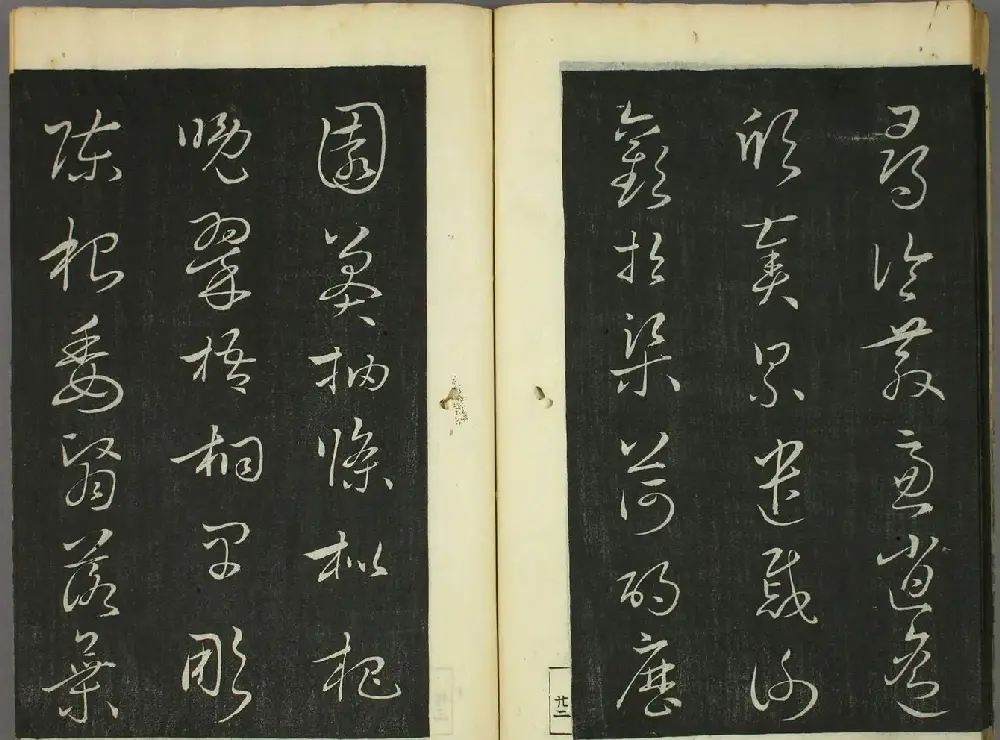 尋論散慮逍遙
欣奏累遣慼謝
歡招渠荷的歷
廿二
園莽抽條枇杷
晚翠梧桐早彫
陳根委翳落葉